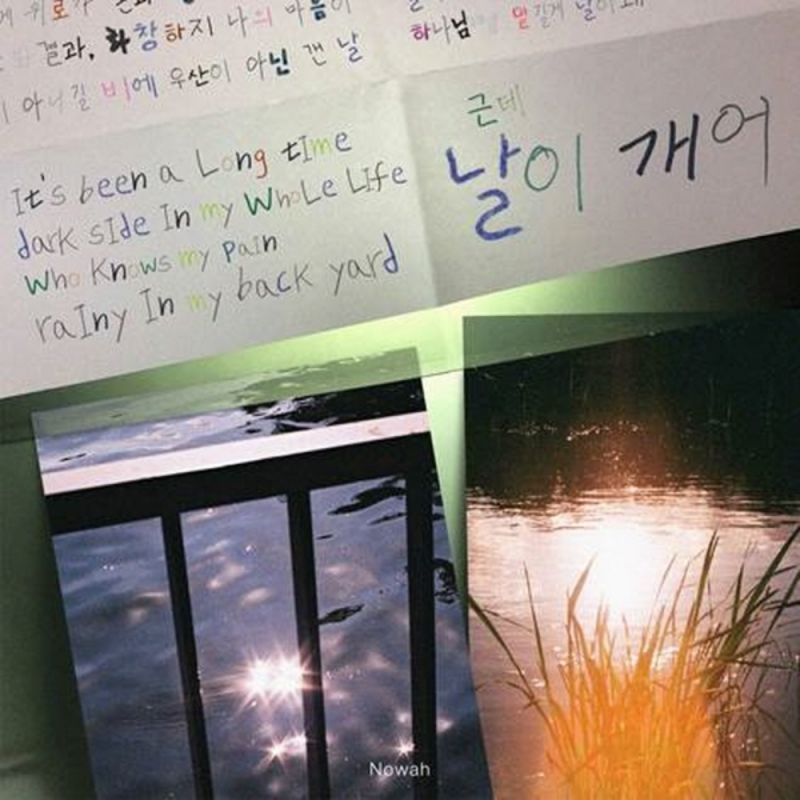 결과, 화창하지 나의 마음이
비에 우산이 아닌 갠 날
하나님
It's been a Long tIme
dark sIde In my WhoLe LIfe
Who Knows my paIn
raIny In my back yard
근데
날이 개어
Nowah